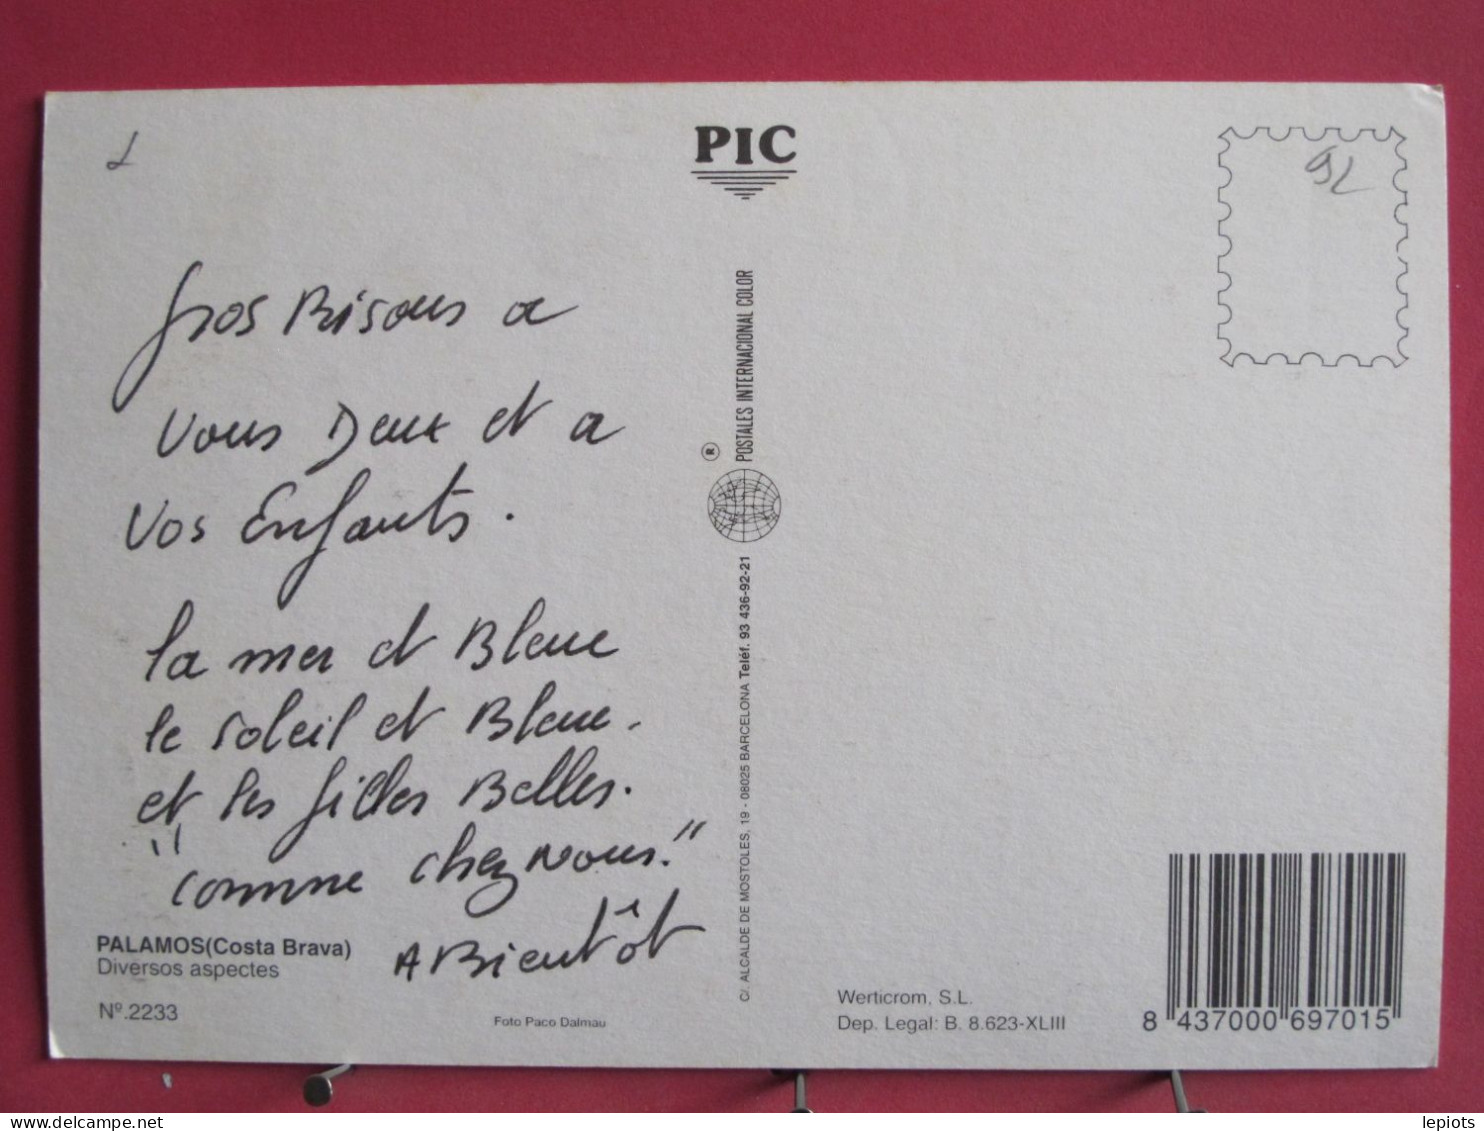 PIC
92
Gros Bisous a
vous Deux et a
vos Enfants.
la mer et Bleue
le soleil et Bleue.
et les filles Belles.
"comme chez nous."
A Bientôt
PALAMOS(Costa Brava)
Diversos aspectes
Nº.2233
Foto Paco Dalmau
POSTALES INTERNACIONAL COLOR
®
C/. ALCALDE DE MOSTOLES, 19 - 08025 BARCELONA Teléf. 93 436-92-21
Werticrom, S.L.
Dep. Legal: B. 8.623-XLIII
8 437000 697015
lepiots